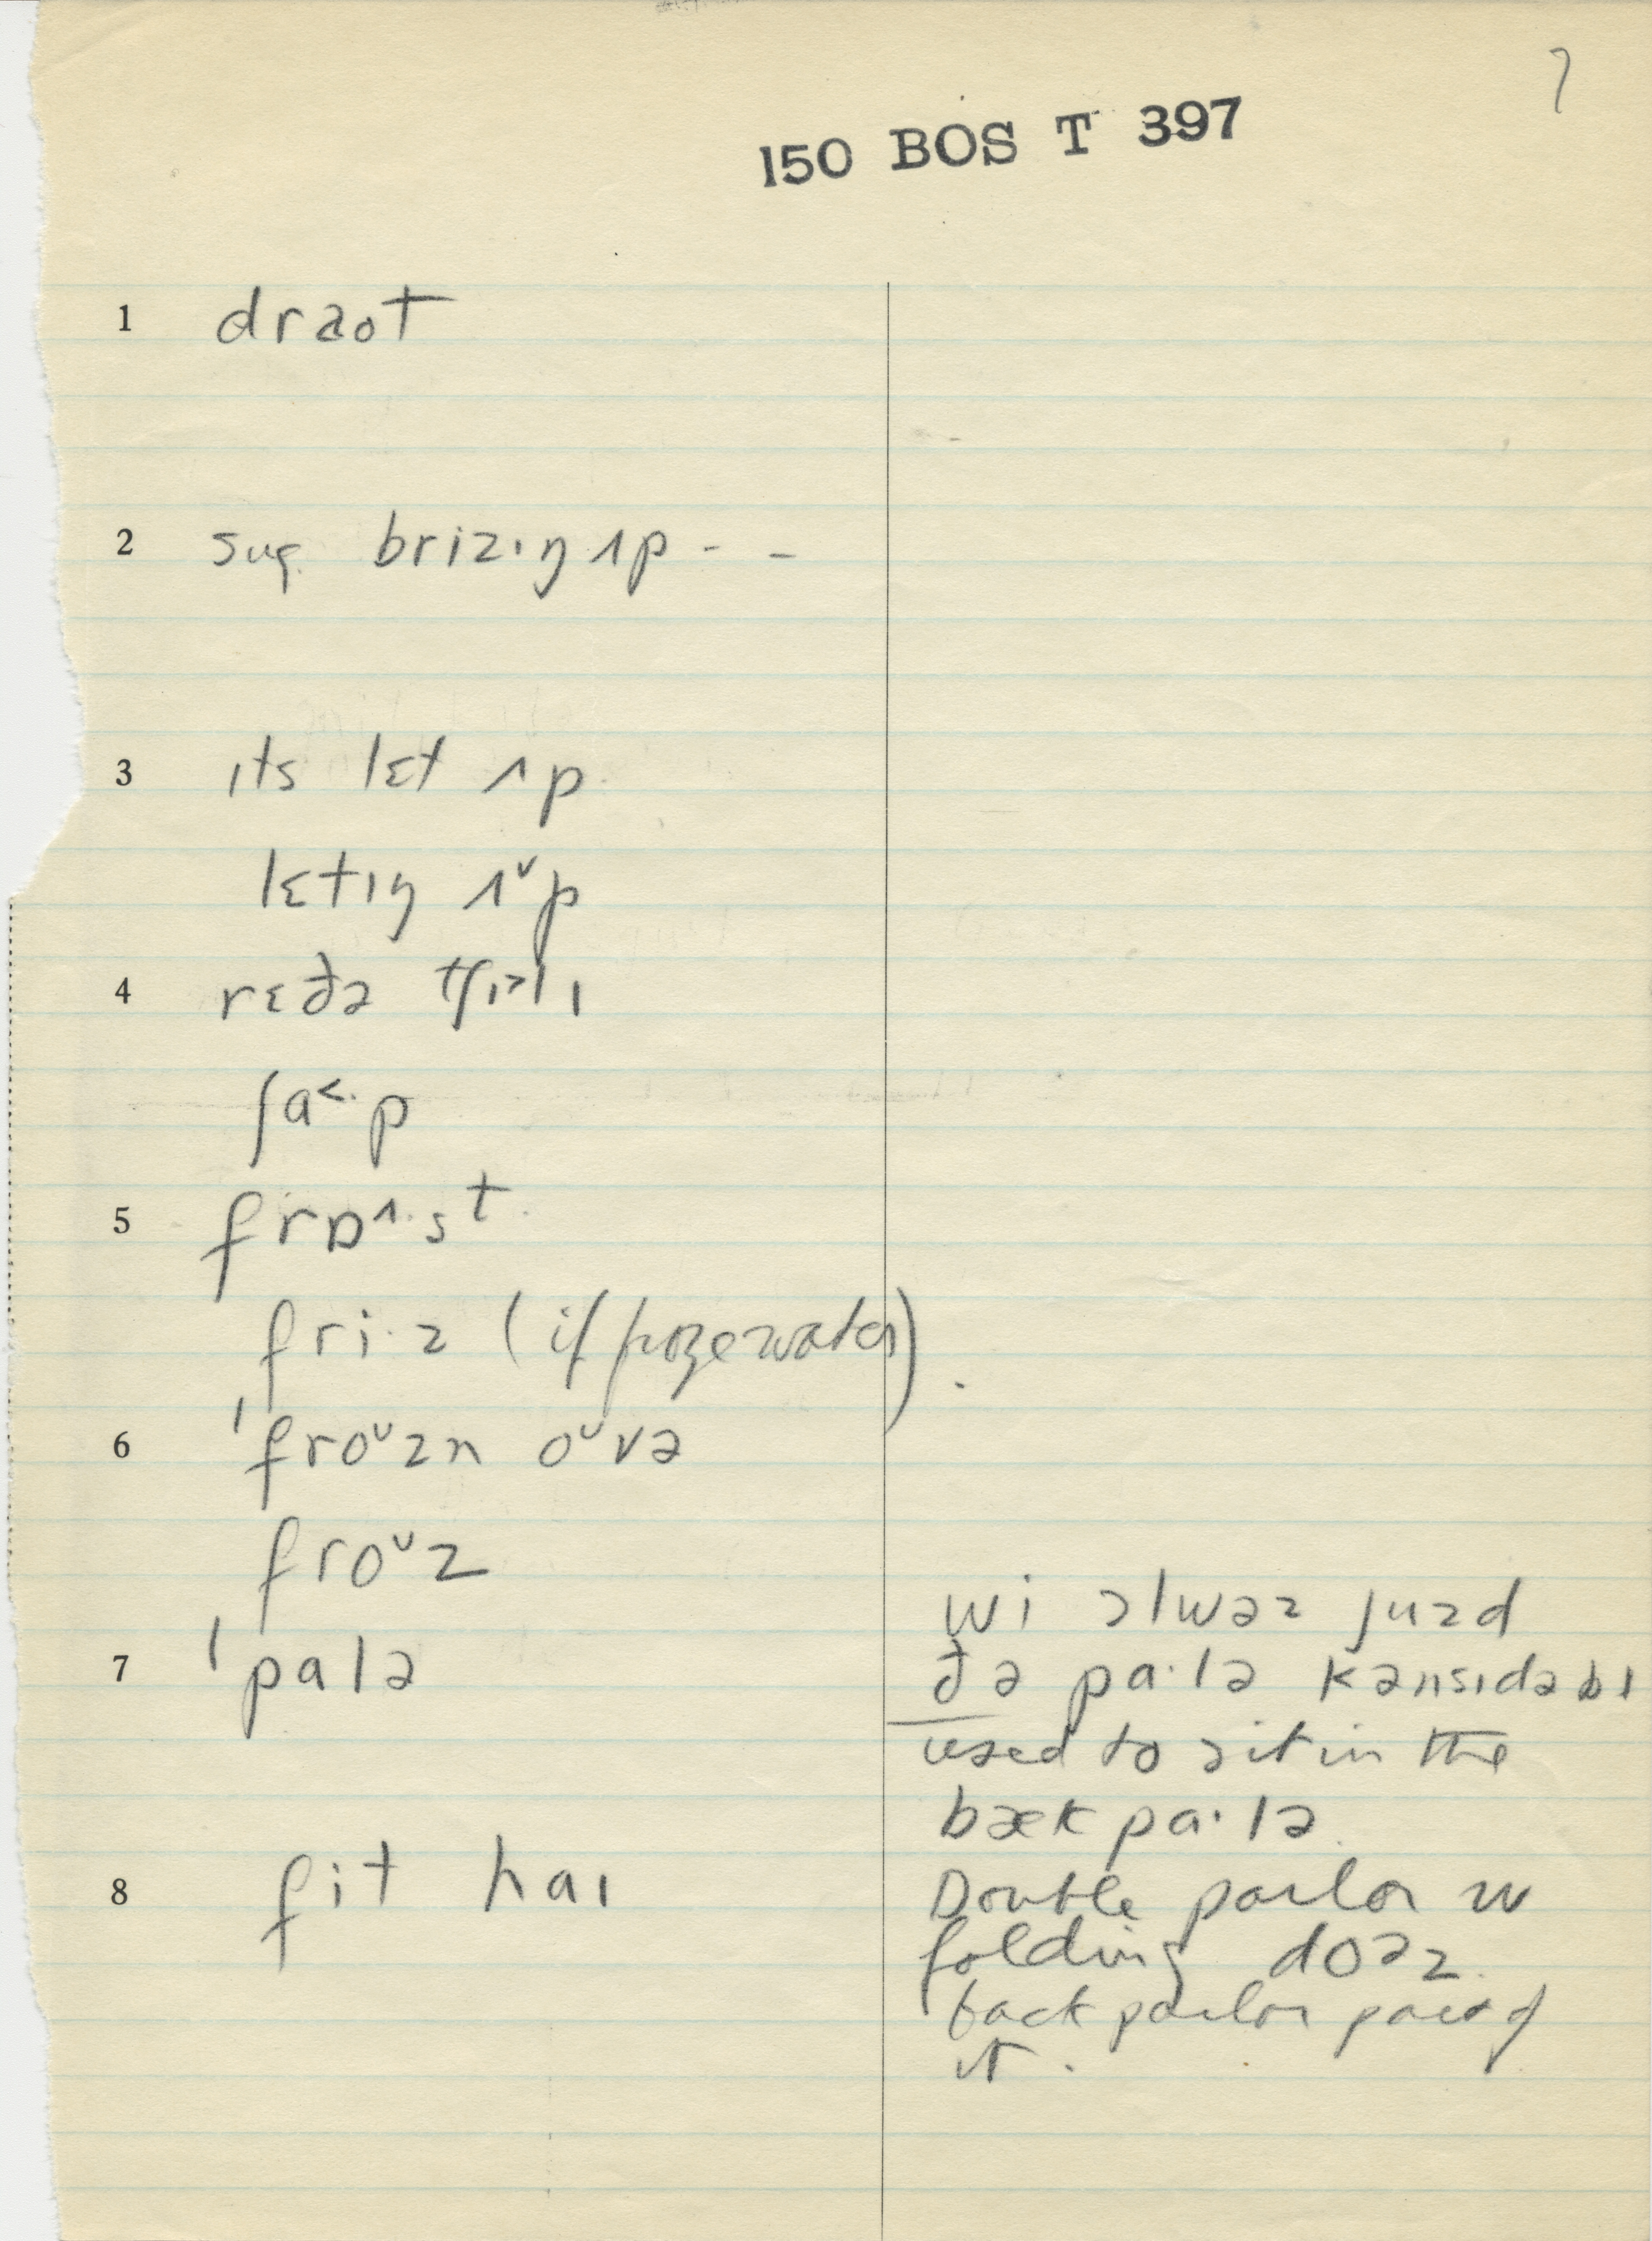 7
150 BOS T 397
1 draʊt
2 sug. brizɪŋ ʌp - -
3 ɪts lɛt ʌp
lɛtɪŋ ʌˇp
4 rɛðə tʃɪ˃lɪ
ʃa˂·p
5 frɒ^·st
fri·z (if froze water).
6 'froᵘzn oᵘvə
froᵘz
7 'palə
wi ɔlwəz juzd
ðə pa·lə kənsɪdəbl
used to sit in the
bæk pa·lə.
8 fit haɪ
Double parlor w
folding doəz.
back parlor part of
it.